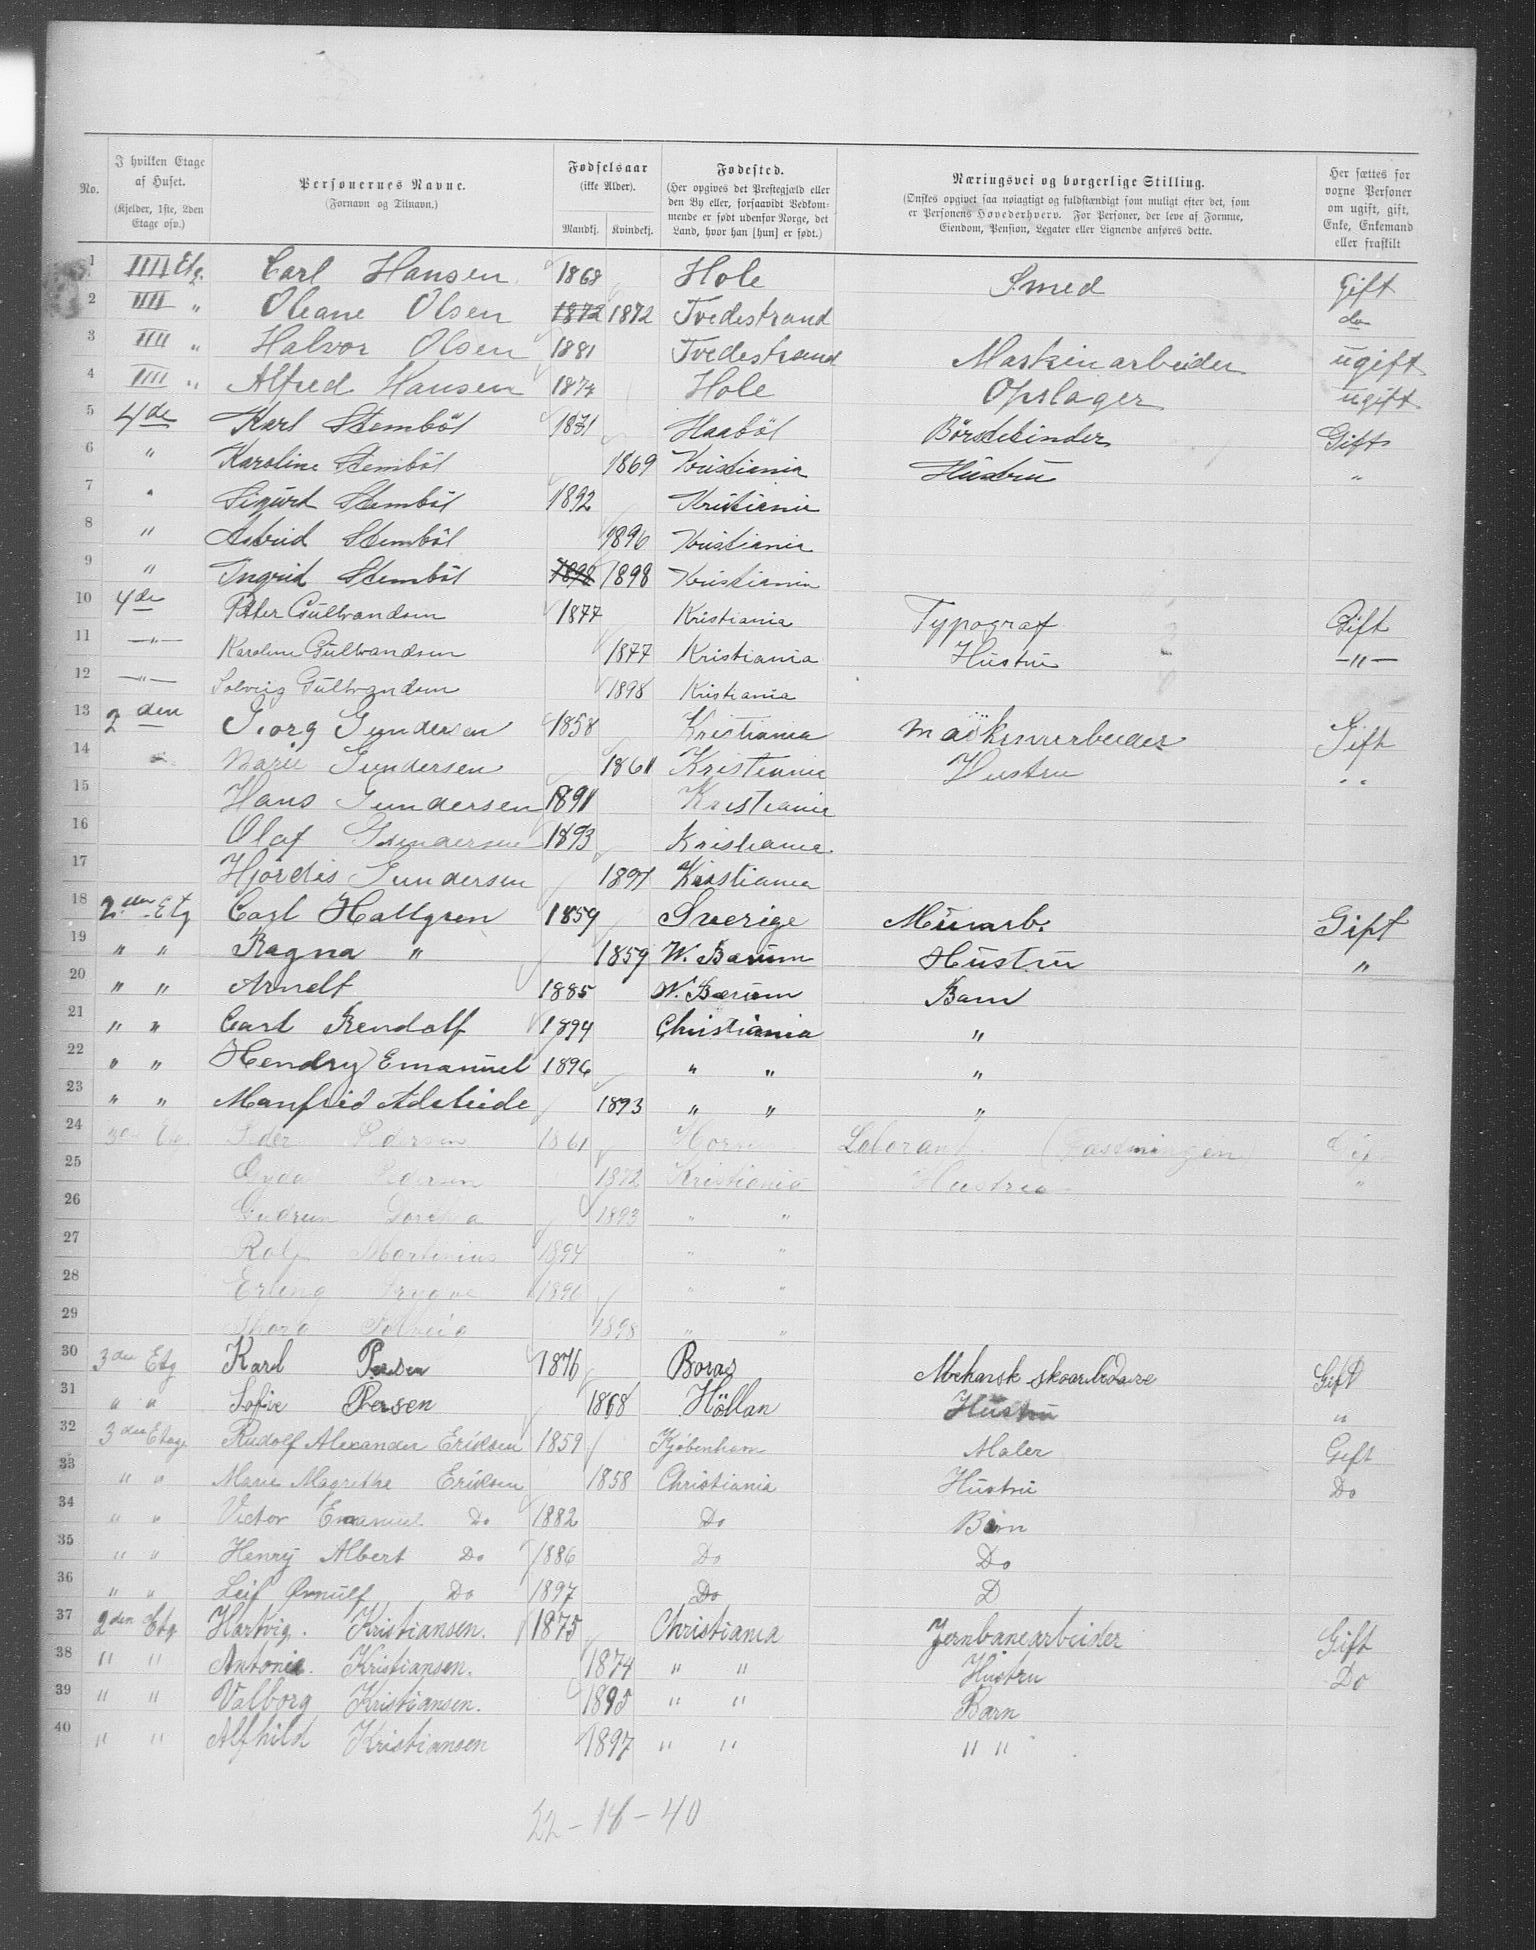 No. I hvilken Etage af Huset. (Kjelder, 1ste, 2den Etage osv.) Personernes Navne. (Fornavn og Tilnavn.) Fødselsaar (ikke Alder). Mandkj. Kvindekj. Fødested. (Her opgives det Prestegjæld eller den By eller, forsaavidt Vedkommende er født udenfor Norge, det Land, hvor han [hun] er født.) Næringsvei og borgerlige Stilling. (Ønskes opgivet saa nøiagtigt og fuldstændigt som muligt efter det, som er Personens Hovederhverv. For Personer, der leve af Formue, Eiendom, Pension, Legater eller Lignende anføres dette. Her sættes for voxne Personer om ugift, gift, Enke, Enkemand eller fraskilt
1 IIII Etg. Carl Hansen 1868 Hole Smed Gift
2 IIII " Oleane Olsen 1872 1872 Tvedestrand do
3 IIII " Halvor Olsen 1881 Tvedestrand Maskinarbeider ugift
4 IIII " Alfred Hansen 1874 Hole Opslager ugift
5 4de Karl Stembøl 1871 Haabøl Børstebinder Gift
6 " Karoline Stembøl 1869 Kristiania Hustru "
7 " Sigurd Stembøl 1892 Kristiania
8 " Astrid Stembøl 1896 Kristiania
9 " Ingrid Stembøl 1898 1898 Kristiania
10 4de Peter Gulbrandsen 1877 Kristiania Typograf Gift
11 —"— Karoline Gulbrandsen 1877 Kristiania Hustru —"—
12 —"— Solveig Gulbrandsen 1898 Kristiania
13 2den Georg Gundersen 1858 Kristiania maskinarbeider Gift
14 " Marie Gundersen 1861 Kristiania Hustru "
15 Hans Gundersen 1891 Kristiania
16 Olaf Gundersen 1893 Kristiania
17 Hjørdis Gundersen 1897 Kristiania
18 2den Etg Carl Hallgren 1859 Sverige Murarb. Gift
19 " " Ragna " 1859 W. Bærum Hustru "
20 " " Arndt 1885 W. Bærum Barn
21 " " Carl Rendolf 1894 Christiania "
22 " " Hendry Emanuel 1896 " " "
23 " " Manfrid Adeleide 1893 " " "
24 Peder Pedersen 1861 Laborant
25 Gyda Pedersen 1872 Kristiania Hustru "
26 Gudrun Dorthea 1893 " "
27 Rolf Martinius 1894 " "
28 Erling Trygve 1896 " "
29 Thora Solveig 1898 " "
30 3die Etg Karl Persen 1876 Boras Mekansk skoarbedare Gift
31 " " Sofie Persen 1868 Höllan Hustru "
32 3die Etage Rudolf Alexander Eriksen 1859 Kjøbenhavn Maler Gift
33 " " Marie Magrethe Eriksen 1858 Christiania Hustru Do
34 " " Victor Emanuel Do 1882 Do Barn
35 " " Henry Albert Do 1886 Do Do
36 " " Leif Ørnulf Do 1897 Do D
37 2den Etg Hartvig. Kristiansen. 1875 Christiania Jernbanearbeider Gift
38 " " Antonie. Kristiansen. 1874 " " Hustru Do
39 " " Valborg Kristiansen. 1895 " " Barn
40 " " Alfhild Kristiansen 1897 " " " "
22 - 18 - 40